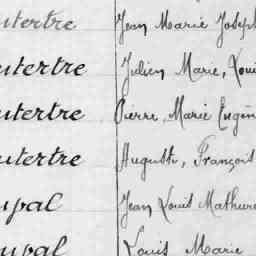 utertre Jean Marie Joseph
utertre Julien Marie, Loui
utertre Pierre, Marie Eugèn
utertre Auguste, François
upal Jean Louis Mathur
upal Louis Marie